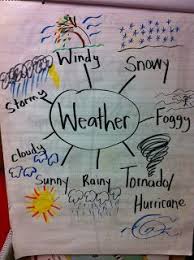 Windy
Snowy
Stormy
Weather
Foggy
Cloudy
Sunny
Rainy
Tornado/
Hurricane